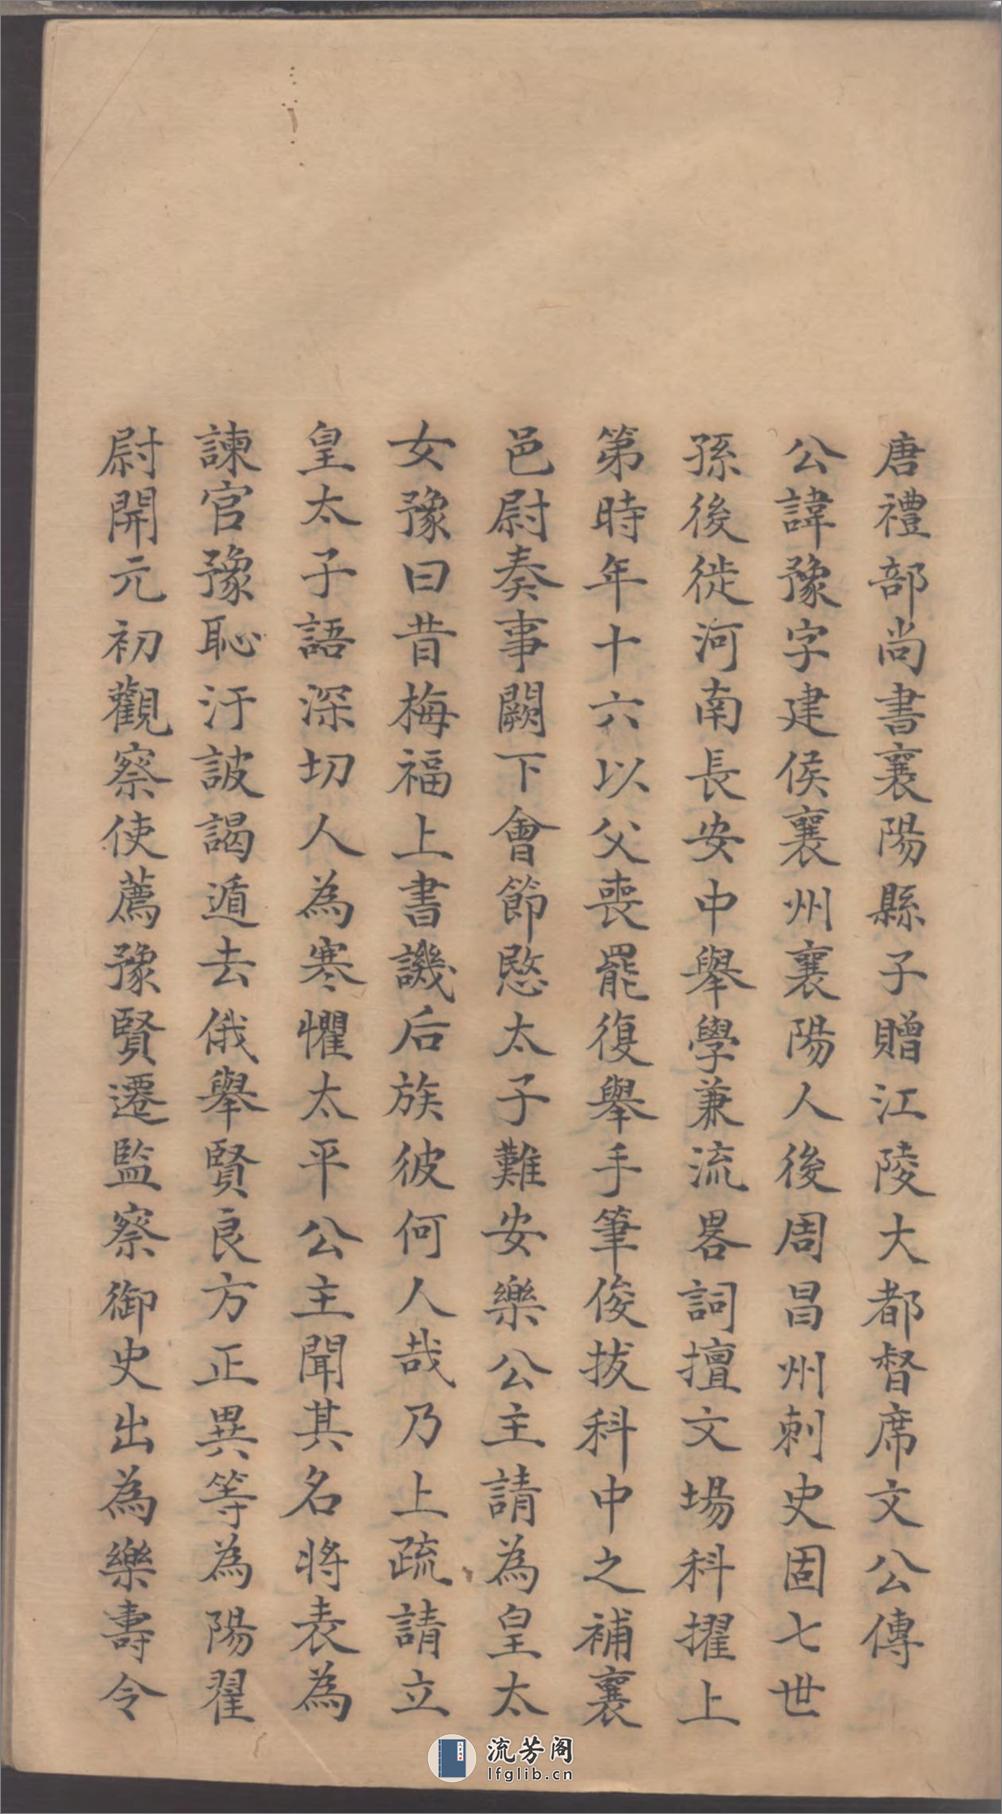 唐禮部尚書襄陽縣子贈江陵大都督席文公傳
公諱豫字建侯襄州襄陽人後周昌州刺史固七世
孫後徙河南長安中舉學兼流畧詞擅文場科擢上
第時年十六以父喪罷復舉手筆俊拔科中之補襄
邑尉奏事闕下會節愍太子難安樂公主請為皇太
女豫曰昔梅福上書譏后族彼何人哉乃上疏請立
皇太子語深切人為寒懼太平公主聞其名將表為
諫官豫恥汙詖謁遁去俄舉賢良方正異等為陽翟
尉開元初觀察使薦豫賢遷監察御史出為樂壽令
流芳阁
lfglib.cn